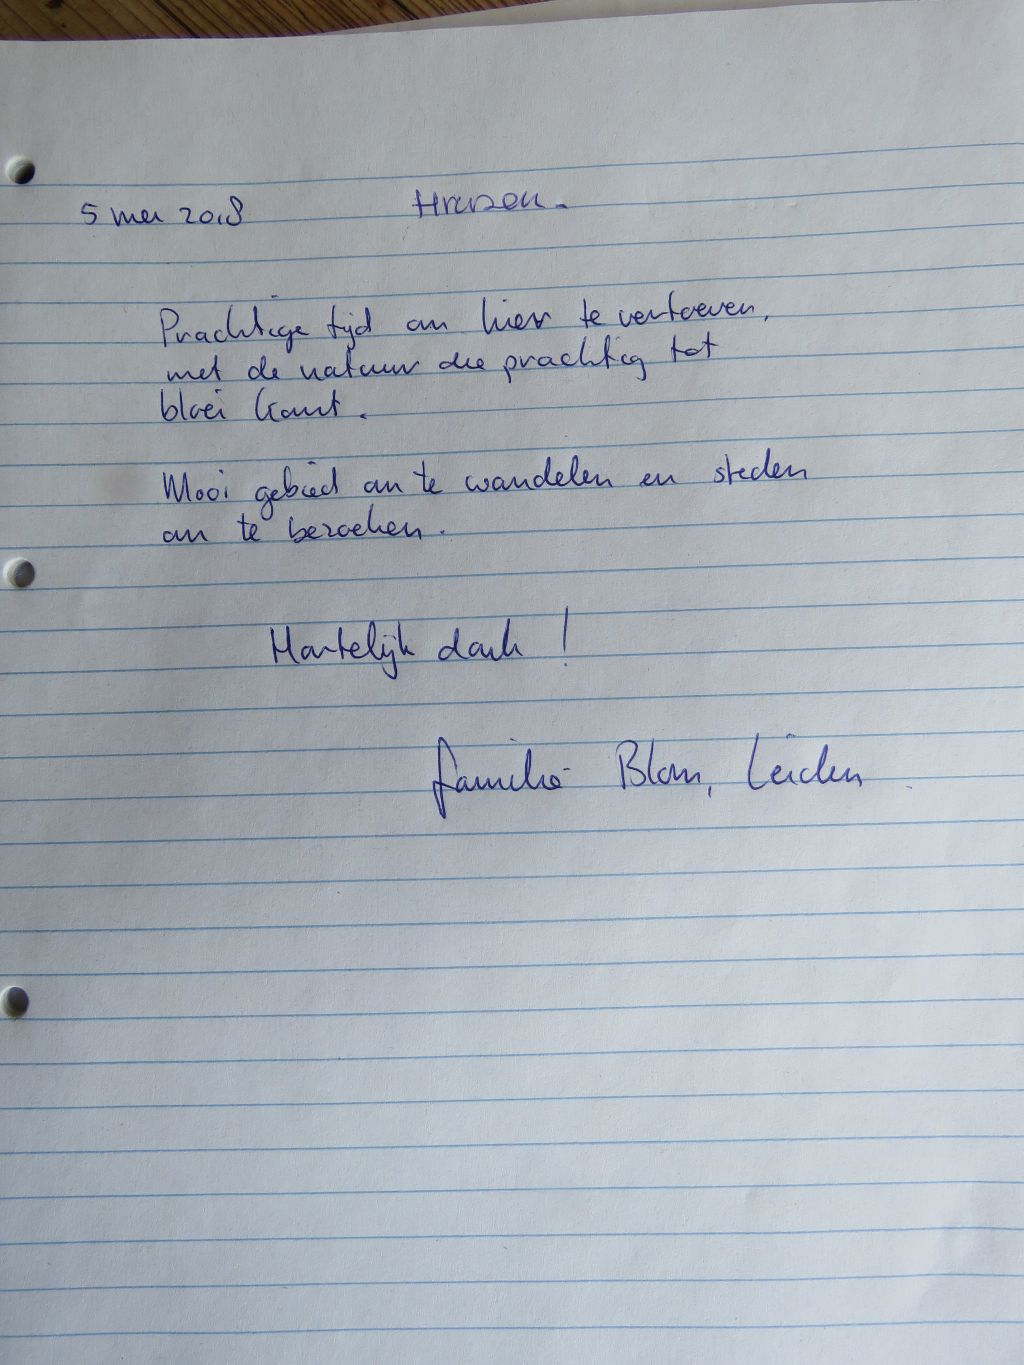 5 mei 2018 Hruson.
Prachtige tijd om hier te vertoeven,
met de natuur die prachtig tot
bloei komt.
Mooi gebied om te wandelen en steden
om te bezoeken.
Hartelijk dank!
familie Blom, Leiden